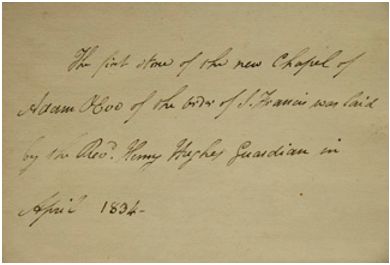 The first stone of the new Chapel of
Adam & Eve of the order of S. Francis was laid
by the Revd. Henry Hughes Guardian in
April 1834-